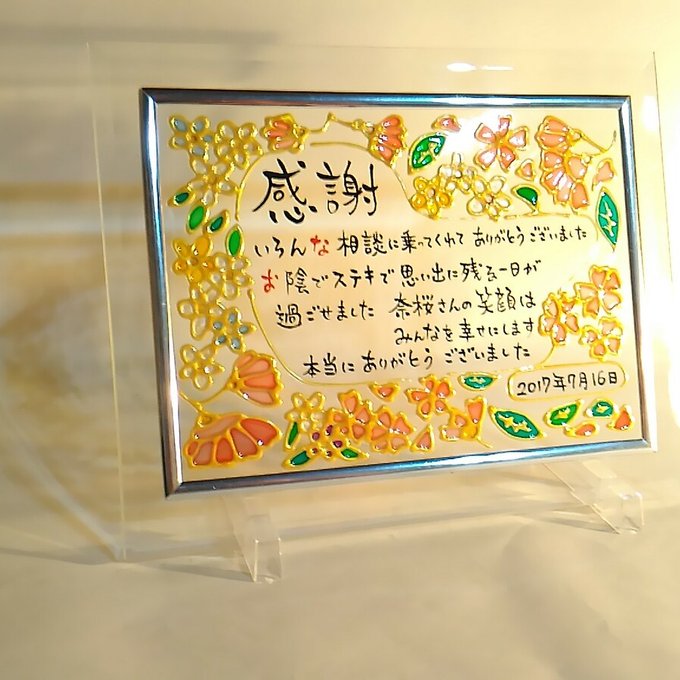 感謝
いろんな相談に乗ってくれて ありがとうございました
お陰でステキで思い出に残る一日が
過ごせました 奈桜さんの笑顔は
みんなを幸せにします
本当にありがとう ございました
2017年7月16日